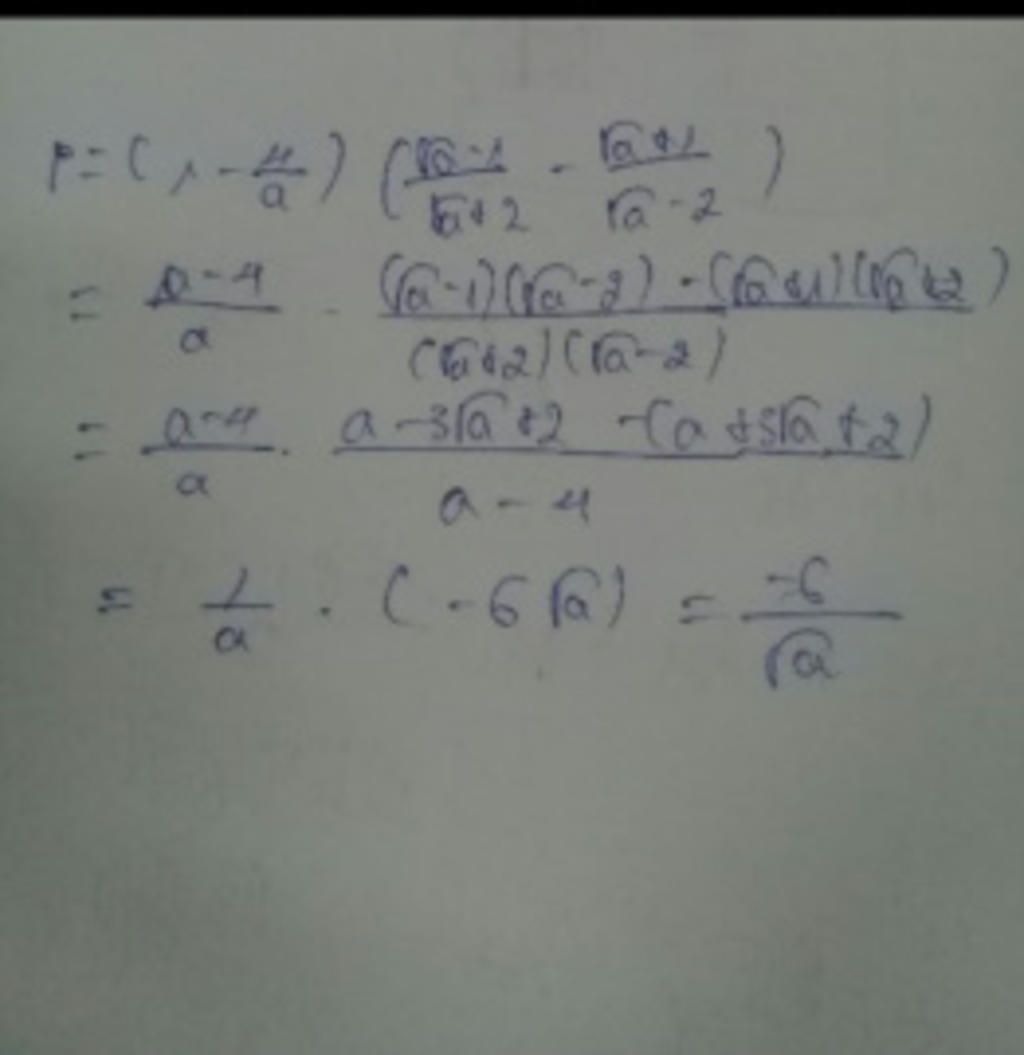 P = (1 - 4/a) ( (√a - 1)/(√a + 2) - (√a + 1)/(√a - 2) )
= (a - 4)/a · ((√a - 1)(√a - 2) - (√a + 1)(√a + 2))/((√a + 2)(√a - 2))
= (a - 4)/a · (a - 3√a + 2 - (a + 3√a + 2))/(a - 4)
= 1/a · (-6√a) = -6/√a